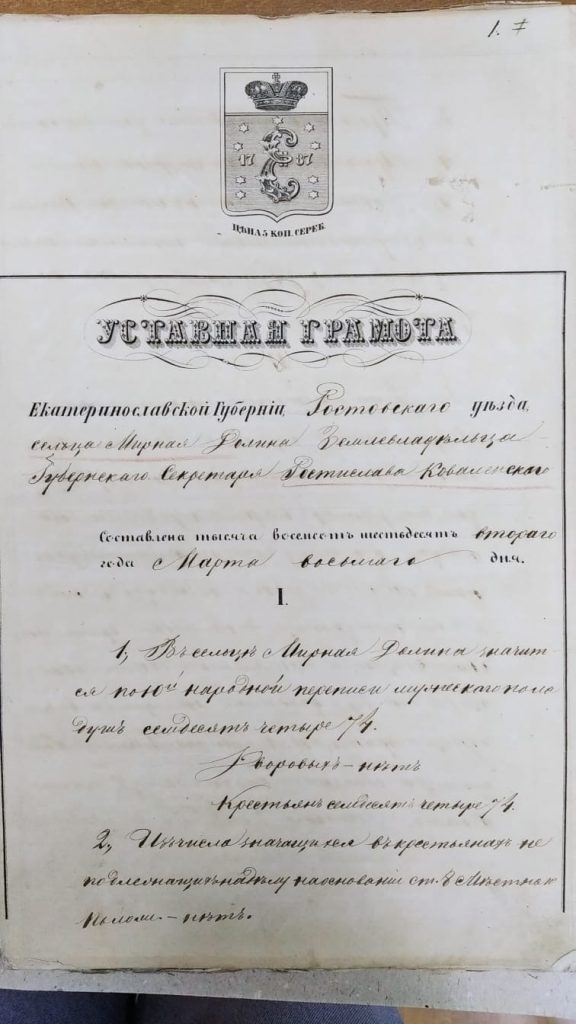 1. 7
17 87
ЦѢНА 5 КОП. СЕРЕБ.
УСТАВНАЯ ГРАМОТА
Екатеринославской Губерніи, Ростовскаго уѣзда,
сельца Мирная Долина Землевладѣльца
Губернскаго Секретаря Ростислава Коваленскаго
Составлена тысяча восемсотъ шестьдесятъ втораго
года Марта восьмаго дня.
I.
1, Въ сельцѣ Мирная Долина значит-
ся по 10й народной переписи мужескаго пола
душъ семдесятъ четыре 74.
Дворовыхъ – нѣтъ
Крестьянъ семдесятъ четыре 74.
2, Изъ числа значащихся въ крестьянахъ не
подлежащихъ надѣлу на основаніи ст. 8 Мѣстнаго
Полож. – нѣтъ.